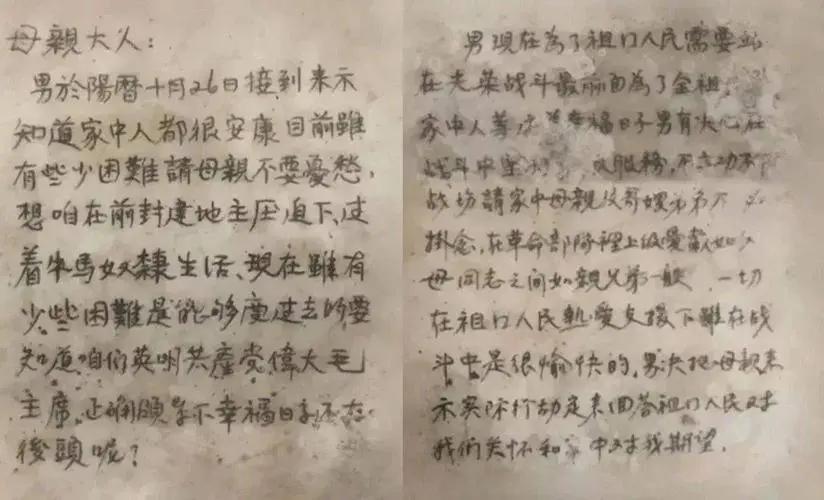 母親大人：
男於陽曆十月26日接到来示
知道家中人都很安康目前雖
有些少困難請母親不要憂愁，
想咱在前封建地主压迫下、过
着牛馬奴隸生活、現在雖有
少些困難是能够度过去的要
知道咱们英明共產党偉大毛
主席、正确領导下幸福日子还在
後頭呢？
男現在為了祖国人民需要站
在光荣战斗最前面為了全祖
家中人等 幸福日子男有决心在
战斗中 服務，不立功不
战场請家中母親及哥嫂弟弟不
掛念，在革命部隊裡上级愛戴如父
母同志之间如親兄弟一般 一切
在祖国人民熱愛支援下雖在战
斗中是很愉快的，男决把母親来
示实际行动定来回答祖国人民对
我们关怀和家中对我期望．